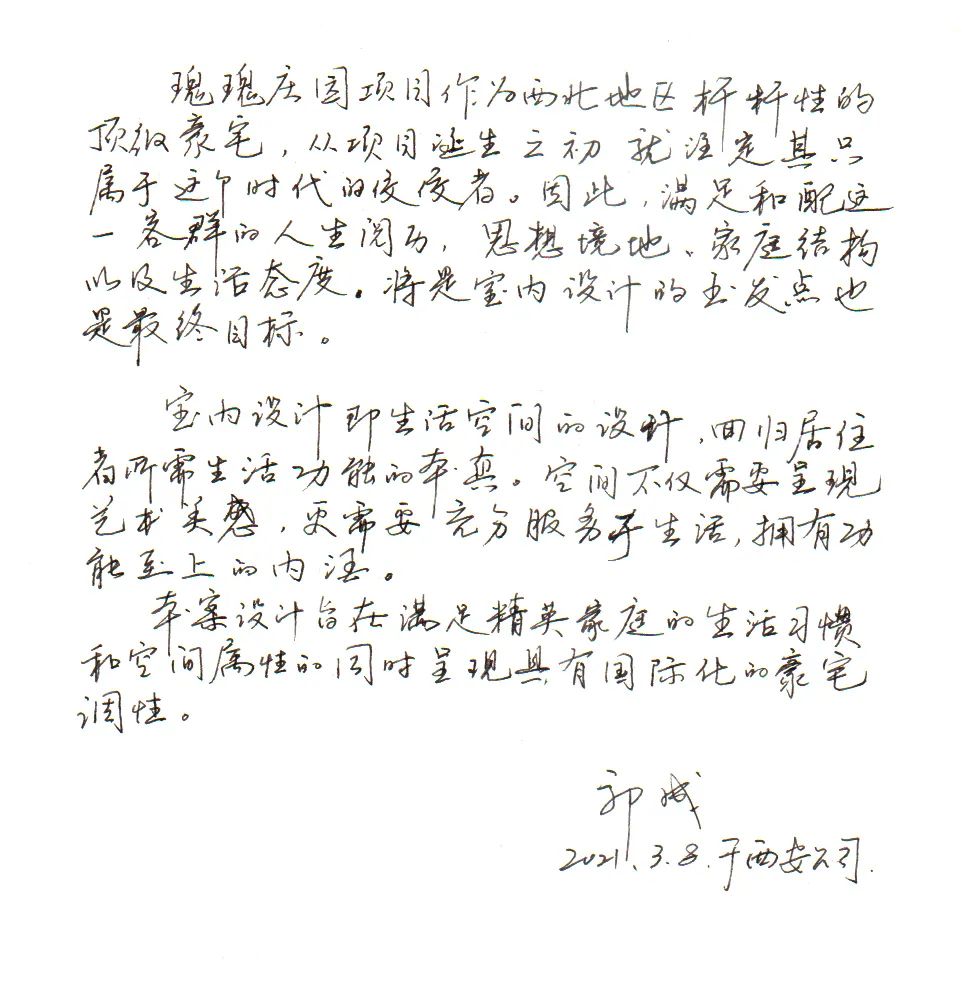 瑰瑰庄园项目作为西北地区杆杆性的
顶级豪宅，从项目诞生之初就注定其只
属于这个时代的佼佼者。因此，满足和配这
一客群的人生阅历，思想境地、家庭结构
以及生活态度。将是室内设计的出发点也
是最终目标。
室内设计即生活空间的设计，回归居住
者所需生活功能的本真。空间不仅需要呈现
艺术美感，更需要充分服务于生活，拥有功
能至上的内涵。
本案设计旨在满足精英家庭的生活习惯
和空间属性的同时呈现具有国际化的豪宅
调性。
郭成
2021.3.8.于西安公司.